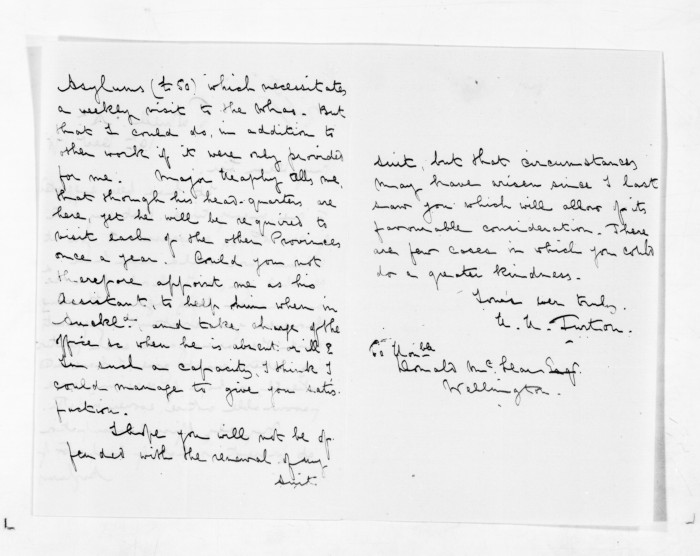 Asylums (£50) which necessitates
a weekly visit to the Whau. But
that I could do, in addition to
other work if it were only provided
for me. Major Heaphy tells me,
that though his head-quarters are
here, yet he will be required to
visit each of the other Provinces
once a year. Could you not
therefore appoint me as his
Assistant, to help him when in
Auckld. and take charge of the
office &c when he is absent
in such a capacity, I think I
could manage to give you satis-
faction.
I hope you will not be of-
fended with the renewal of my
suit.
suit, but that circumstances
may have arisen since I last
saw you which will allow of its
favourable consideration. There
are few cases in which you could
do a greater kindness.
Yours ever truly,
H. H. Turton.
Honble
Donald McLean Esqr.
Wellington.